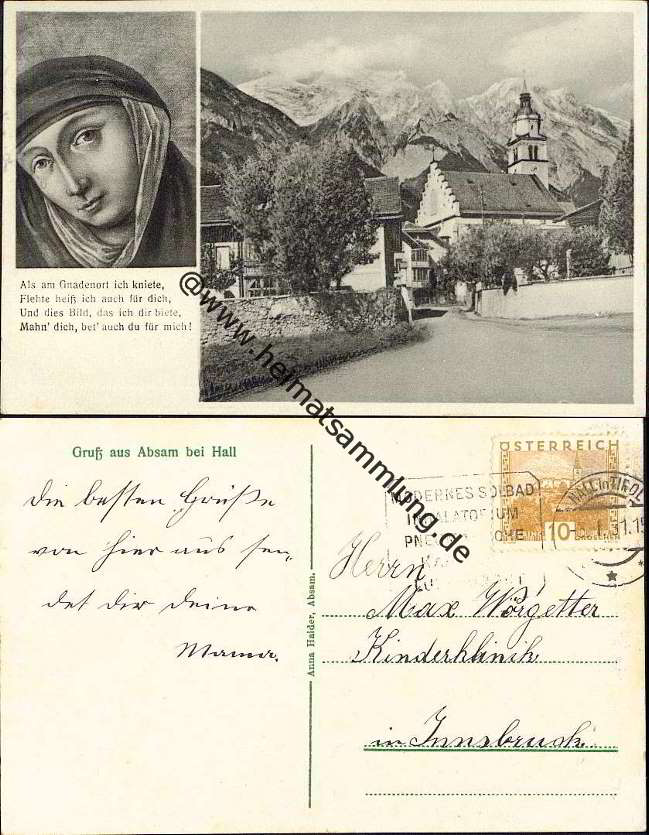 Als am Gnadenort ich kniete,
Flehte heiß ich auch für dich,
Und dies Bild, das ich dir biete,
Mahn' dich, bet' auch du für mich!
@www.heimatsammlung.de
Gruß aus Absam bei Hall
Die besten Grüße
von hier aus sen-
det dir deine
Mama.
Anna Haider, Absam.
ÖSTERREICH
10
HALL in TIROL
MODERNES SOLBAD
Herrn
Max Wörgetter
Kinderklinik
in Innsbruck.